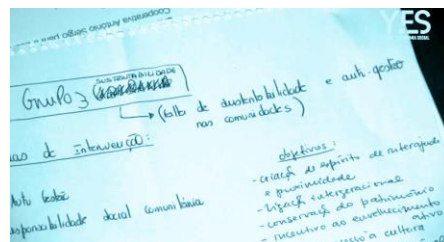 Cooperativa António Sérgio para a
YES
SOCIAL
SUSTENTABILIDADE
GRUPO 3
(falta de sustentabilidade e auto-gestão
nas comunidades)
as de Intervenção:
Auto Gestão
esponsabilidade social comunitária
objetivos:
- criação de espírito de
e proximidade
- ligação intergeracional
- conservação do património
- incentivo ao envelhecimento
ativo
à cultura